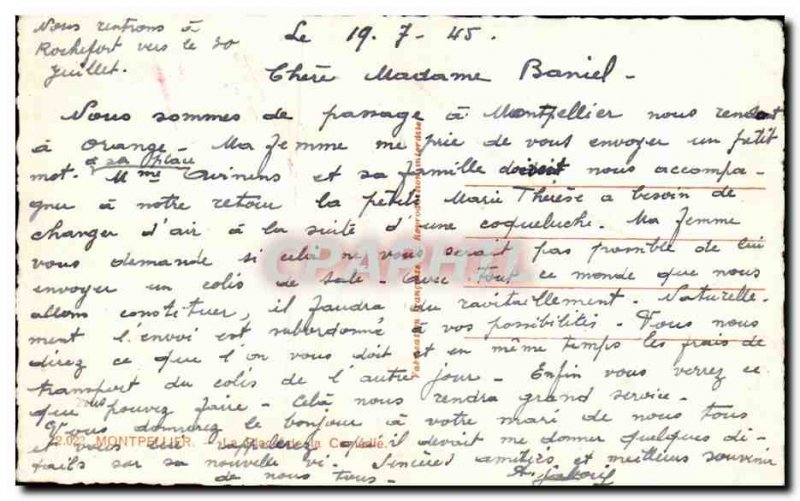 Nous rentrons à
Rochefort vers le 30
juillet.
Le 19. 7 - 45.
Chère Madame Baniel -
Nous sommes de passage à Montpellier nous rendant
à Orange - Ma femme me prie de vous envoyer un petit
mot. à sa place
Mme et sa famille doivent nous accompa-
gner à notre retour la petite Marie Thérèse a besoin de
changer d'air à la suite d'une coqueluche. Ma femme
vous demande si celà ne vous serait pas possible de lui
envoyer un colis de sale - avec tout ce monde que nous
allons constituer, il faudra du ravitaillement. Naturelle-
ment l'envoi est subordonné à vos possibilités - Vous nous
direz ce que l'on vous doit et en même temps les frais de
transport du colis de l'autre jour - Enfin vous verrez ce
que vous pouvez faire - Celà nous rendra grand service -
vous donnerez le bonjour à votre mari de nous tous
et vous lui rappelerez qu'il devait me donner quelques dé-
tails sur sa nouvelle vi. Sincères amitiés et meilleurs souvenir
de nous tous -
MONTPELLIER
Fabrication Française - Reproduction interdite
CPAPHIL